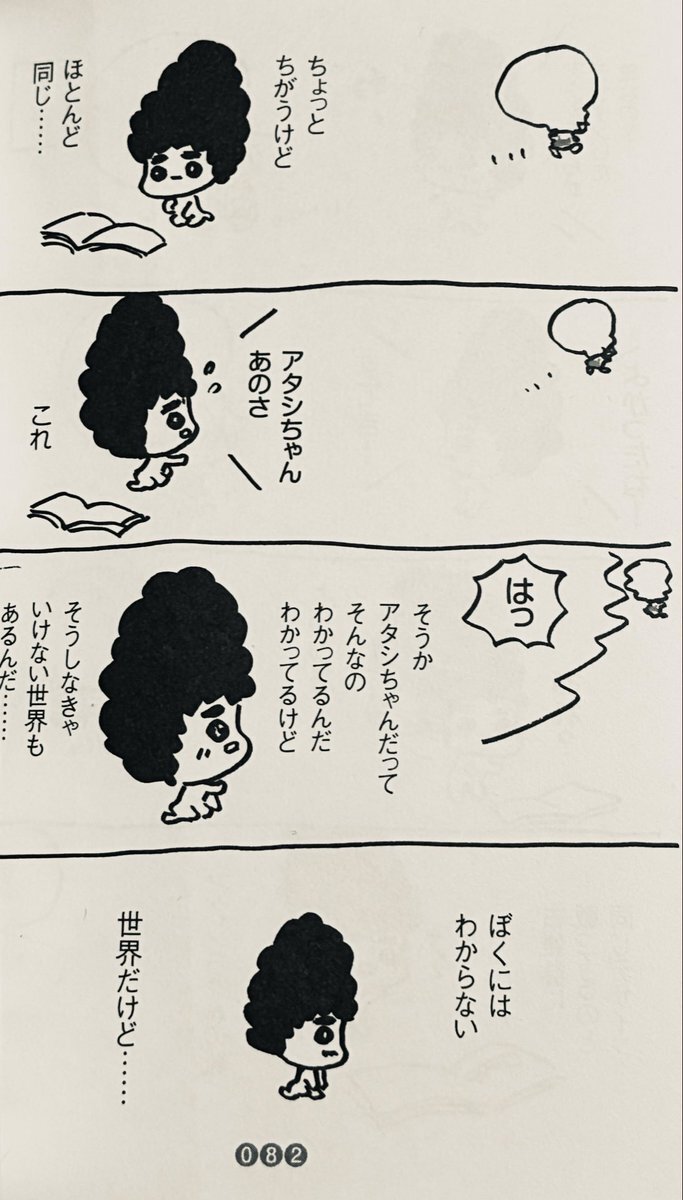 ちょっと
ちがうけど
ほとんど
同じ……
アタシちゃん
あのさ
これ
はっ
そうか
アタシちゃんだって
そんなの
わかってるんだ
わかってるけど
そうしなきゃ
いけない世界も
あるんだ……
ぼくには
わからない
世界だけど……
082